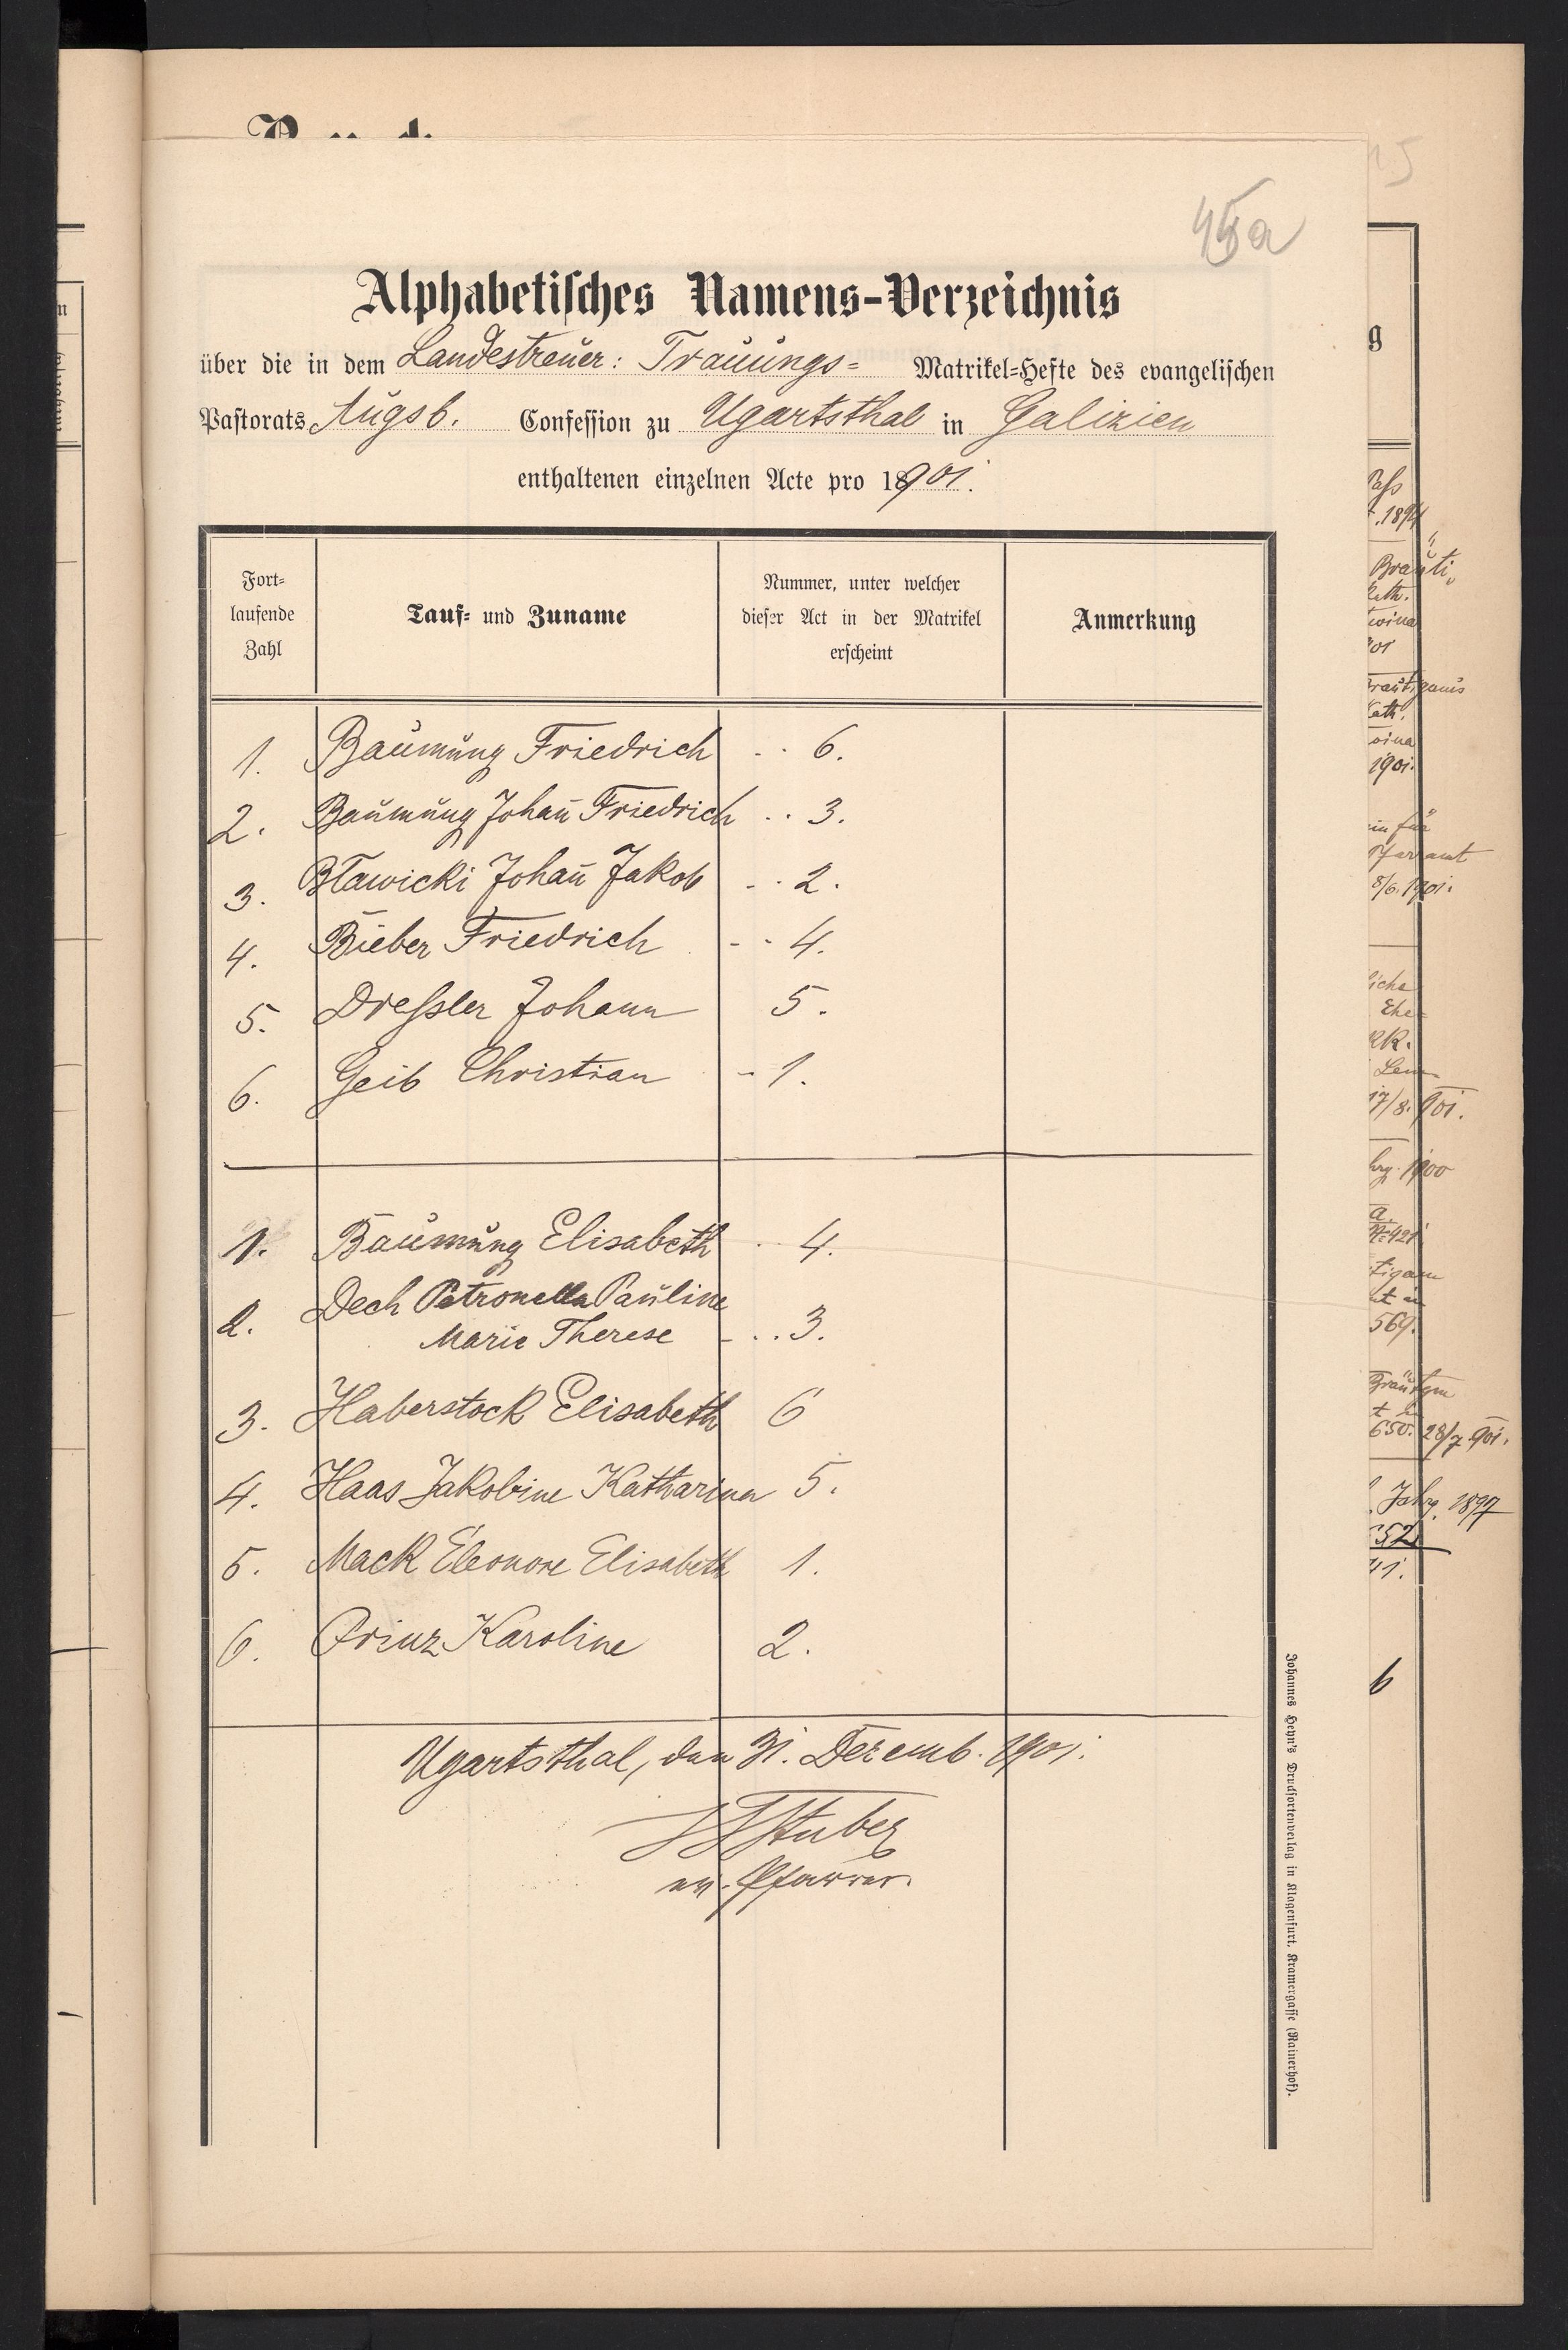 45a
Alphabetisches Namens-Verzeichnis
über die in dem Landestreuer: Trauungs= Matrikel=Hefte des evangelischen
Pastorats Augsb. Confession zu Ugartsthal in Galizien
enthaltenen einzelnen Acte pro 1901.
Fort=
laufende
Zahl
Tauf= und Zuname
Nummer, unter welcher
dieser Act in der Matrikel
erscheint
Anmerkung
1. Baumung Friedrich - - 6.
2. Baumung Johan̄ Friedrich . . 3.
3. Bławicki Johan̄ Jakob - - 2.
4. Bieber Friedrich - - 4.
5. Dreſsler Johann 5.
6. Geib Christian - 1.
1. Baumung Elisabeth - - 4.
2. Dech Petronella Pauline
Marie Therese - . . 3.
3. Haberstock Elisabeth 6
4. Haas Jakobine Katharina 5.
5. Mack Eleonore Elisabeth 1.
6. Prinz Karoline 2.
Ugartsthal, den 31. Dezemb. 1901.
Stuber
ev. Pfarrer.
Johannes Heyn's Drucksortenverlag in Klagenfurt, Kramergasse (Rainerhof).
g
1894
Bräuti
Kath.
1901.
Pfarramt
8/6. 1901.
Ehe=
17/8. 901.
1900
569.
650. 28/7. 901.
Jahrg. 1897
6